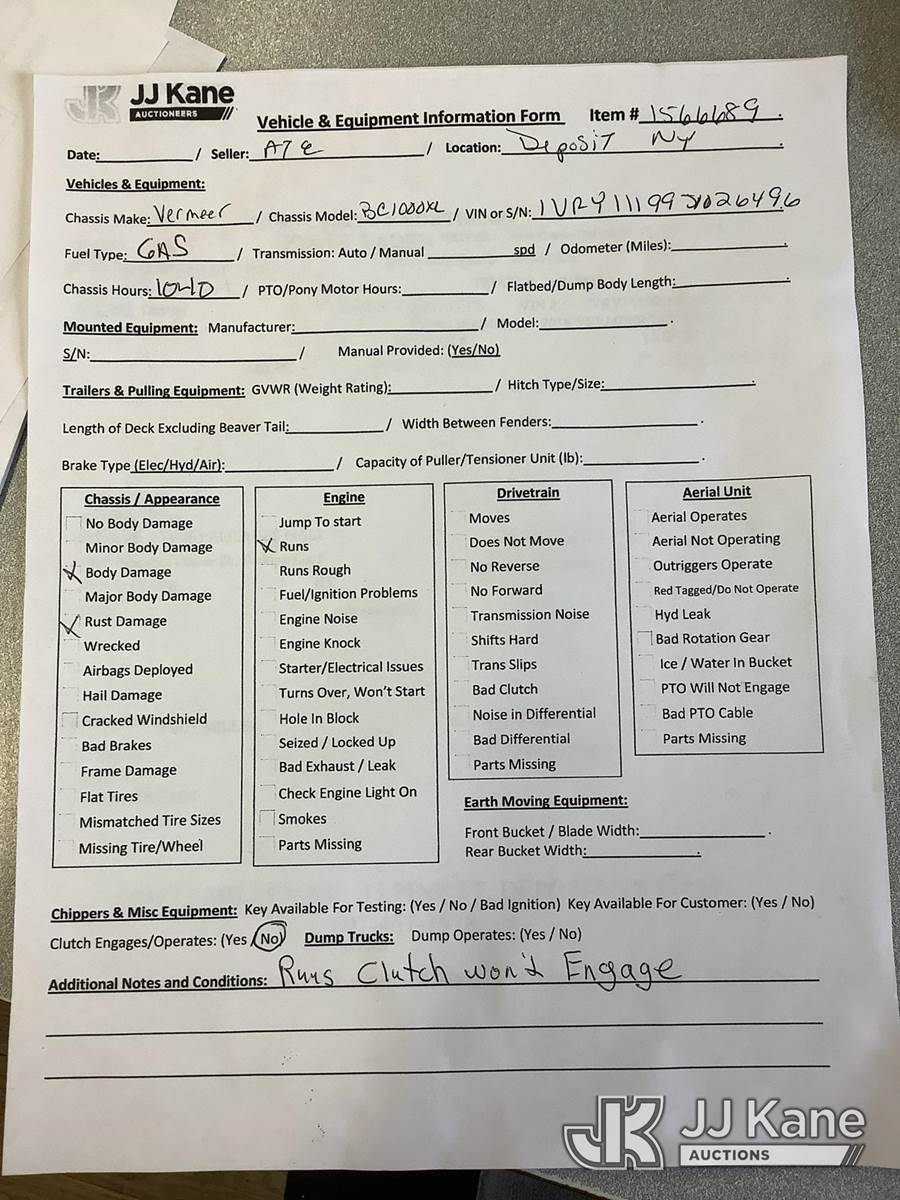 JJ Kane
AUCTIONEERS
Vehicle & Equipment Information Form Item # 1566689.
Date: / Seller: ATE / Location: Deposit NY.
Vehicles & Equipment:
Chassis Make: Vermeer / Chassis Model: BC1000XL / VIN or S/N: 1VRY11199 1026496
Fuel Type: GAS / Transmission: Auto / Manual spd / Odometer (Miles): .
Chassis Hours: 1040 / PTO/Pony Motor Hours: / Flatbed/Dump Body Length: .
Mounted Equipment: Manufacturer: / Model: .
S/N: / Manual Provided: (Yes/No)
Trailers & Pulling Equipment: GVWR (Weight Rating): / Hitch Type/Size: .
Length of Deck Excluding Beaver Tail: / Width Between Fenders: .
Brake Type (Elec/Hyd/Air): / Capacity of Puller/Tensioner Unit (lb): .
Chassis / Appearance
No Body Damage
Minor Body Damage
X Body Damage
Major Body Damage
Rust Damage
Wrecked
Airbags Deployed
Hail Damage
Cracked Windshield
Bad Brakes
Frame Damage
Flat Tires
Mismatched Tire Sizes
Missing Tire/Wheel
Engine
Jump To start
X Runs
Runs Rough
Fuel/Ignition Problems
Engine Noise
Engine Knock
Starter/Electrical Issues
Turns Over, Won't Start
Hole In Block
Seized / Locked Up
Bad Exhaust / Leak
Check Engine Light On
Smokes
Parts Missing
Drivetrain
Moves
Does Not Move
No Reverse
No Forward
Transmission Noise
Shifts Hard
Trans Slips
Bad Clutch
Noise in Differential
Bad Differential
Parts Missing
Aerial Unit
Aerial Operates
Aerial Not Operating
Outriggers Operate
Red Tagged/Do Not Operate
Hyd Leak
Bad Rotation Gear
Ice / Water In Bucket
PTO Will Not Engage
Bad PTO Cable
Parts Missing
Earth Moving Equipment:
Front Bucket / Blade Width: .
Rear Bucket Width: .
Chippers & Misc Equipment: Key Available For Testing: (Yes / No / Bad Ignition) Key Available For Customer: (Yes / No)
Clutch Engages/Operates: (Yes / No) Dump Trucks: Dump Operates: (Yes / No)
Additional Notes and Conditions: Runs Clutch won't Engage
JJ Kane
AUCTIONS